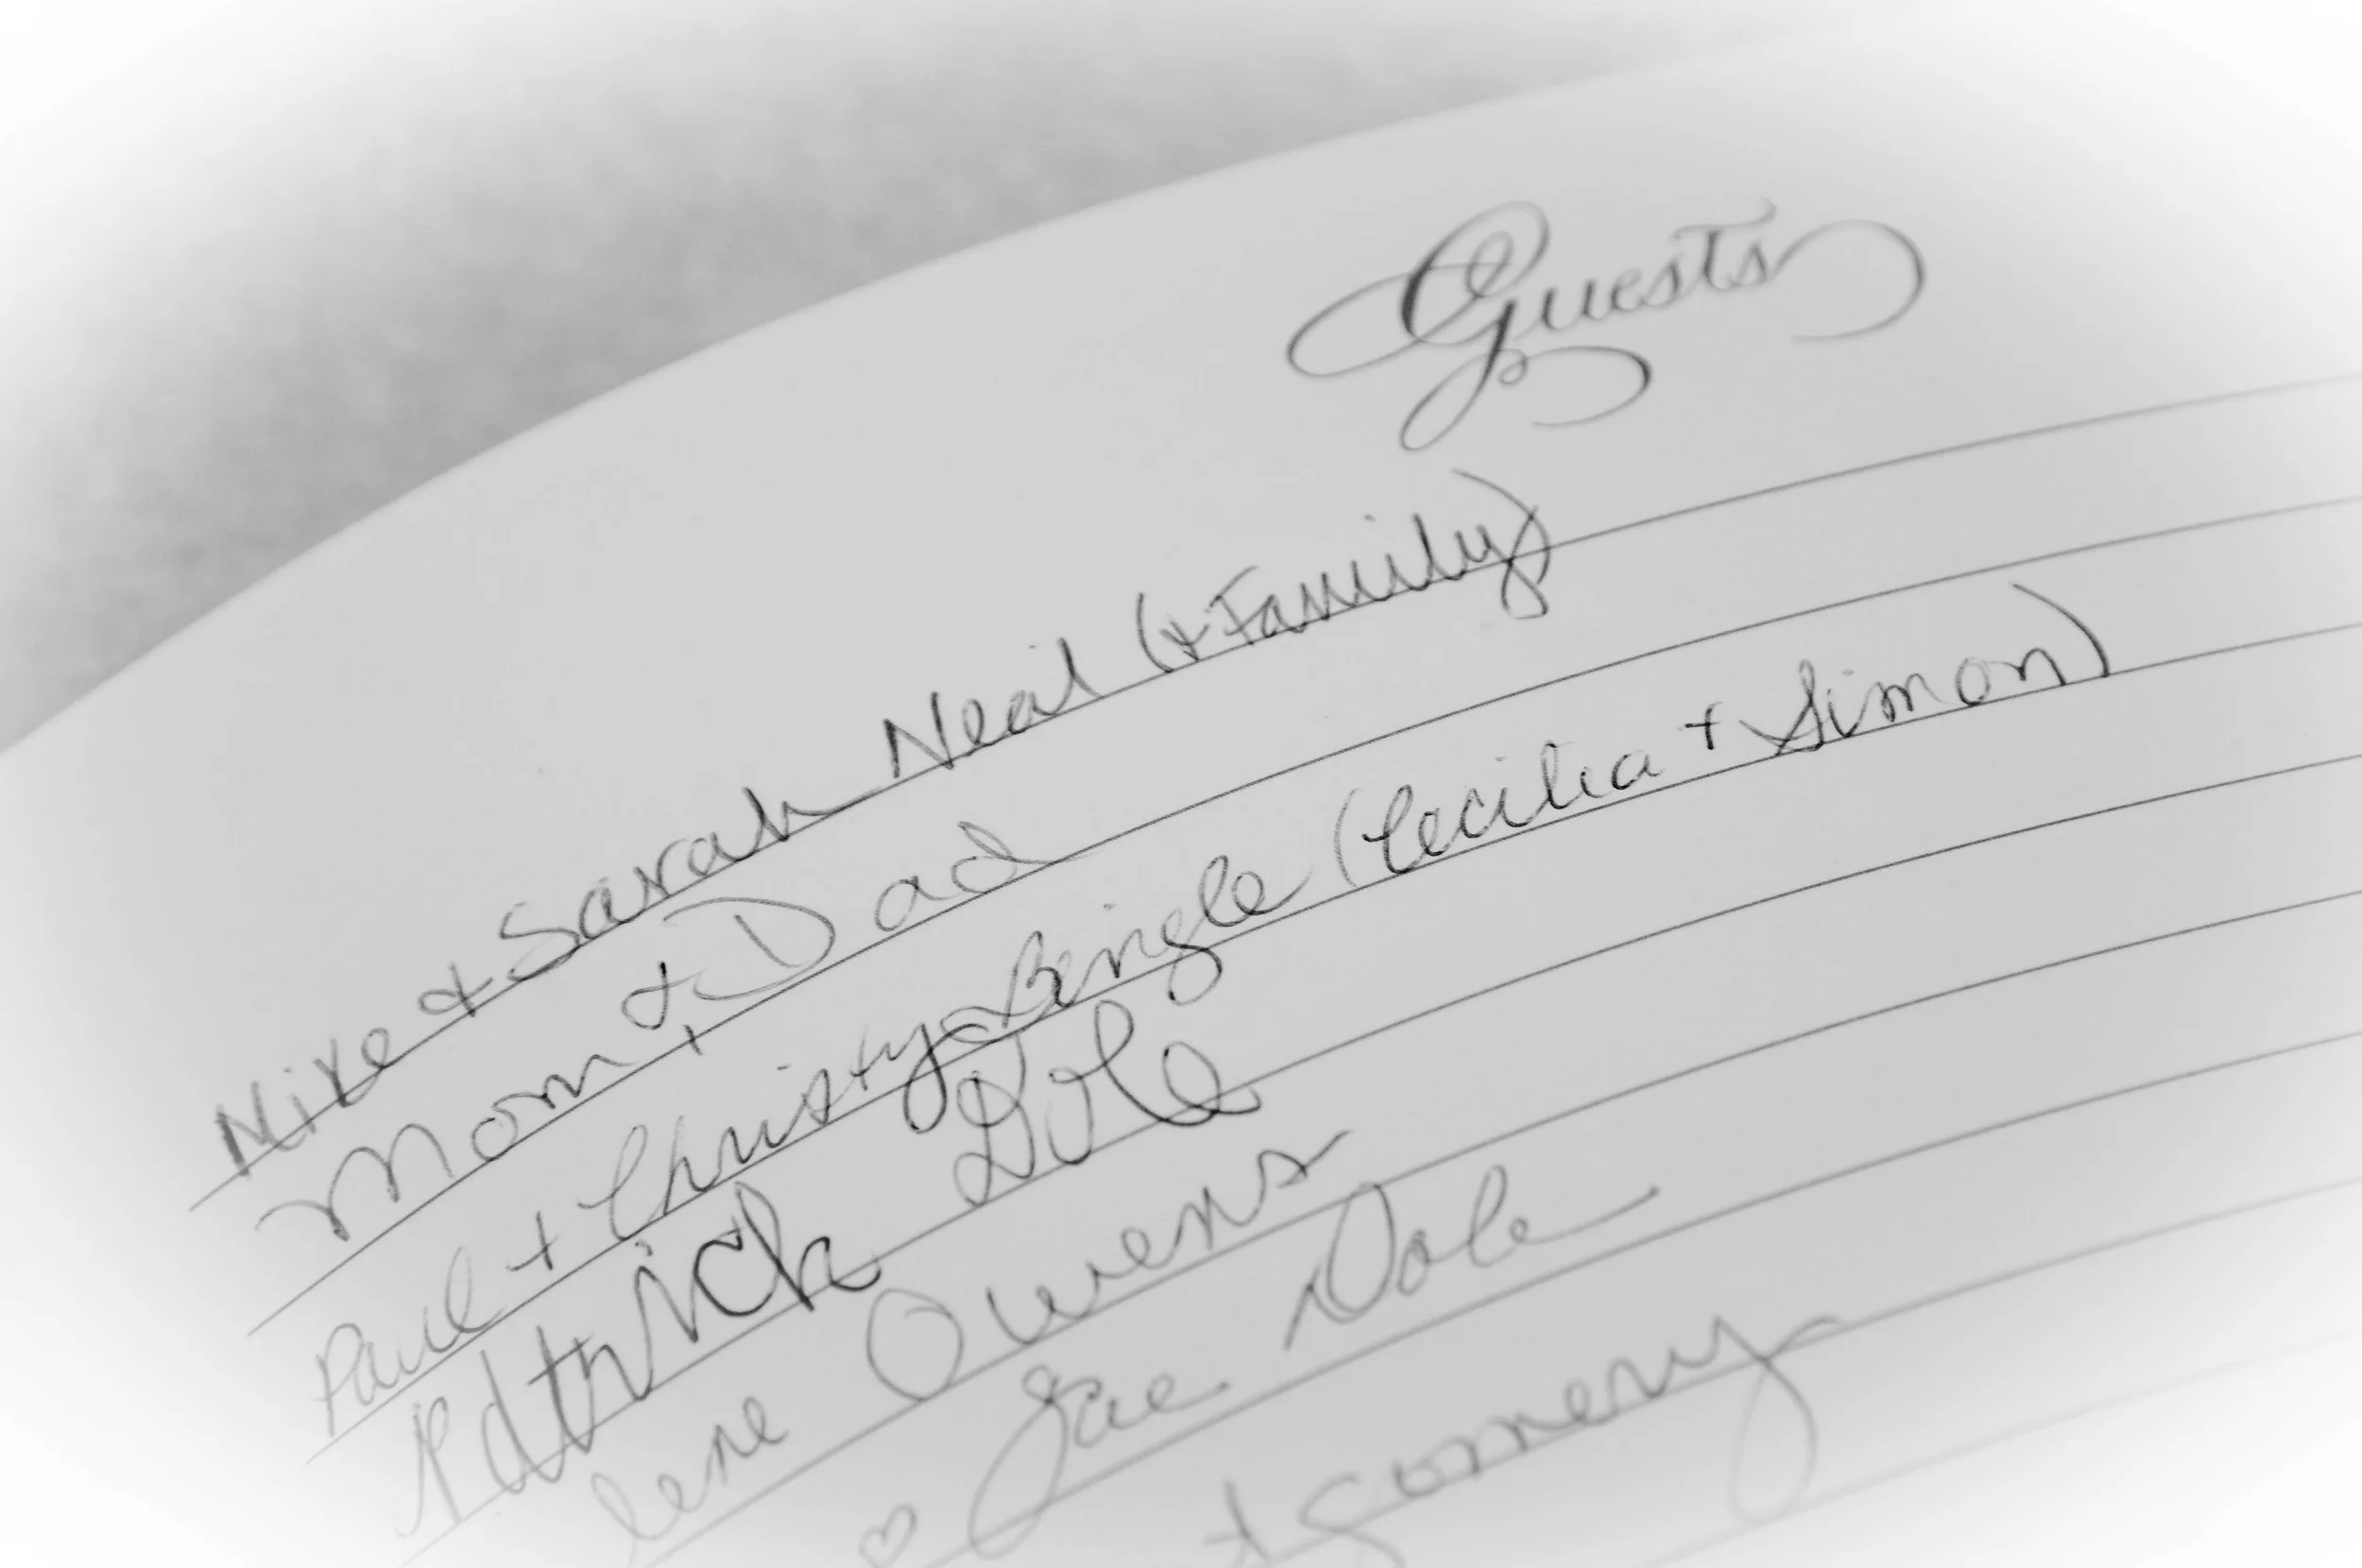 Guests
Mike & Sarah Neal (+ Family)
Mom & Dad
Paul + Christy Bingle (Cecilia + Simon)
Patrick Dole
lene Owens
♡ Jae Dole
tgomery